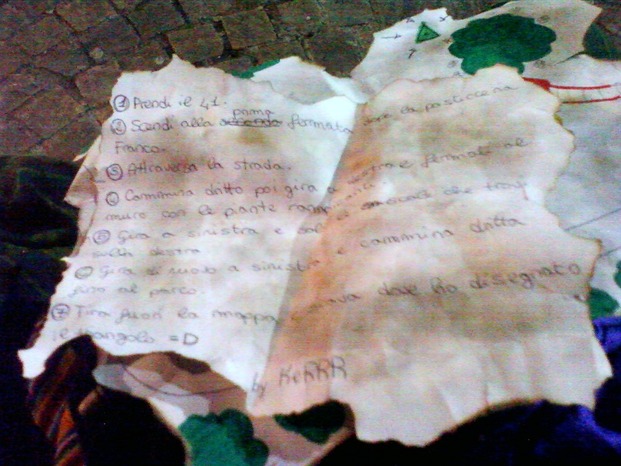 ① Prendi il 41.
prima
② Scendi alla seconda fermata la pasticceria
Franco.
③ Attraversa la strada.
④ Cammina dritto poi gira a destra e fermati al
muro con le piante rampicanti.
⑤ Gira a sinistra e che trovi
sulla destra
⑥ Gira di nuovo a sinistra e cammina dritta
fino al parco.
⑦ Tira fuori la mappa e scava dove ho disegnato
il triangolo =D
by KeRRR